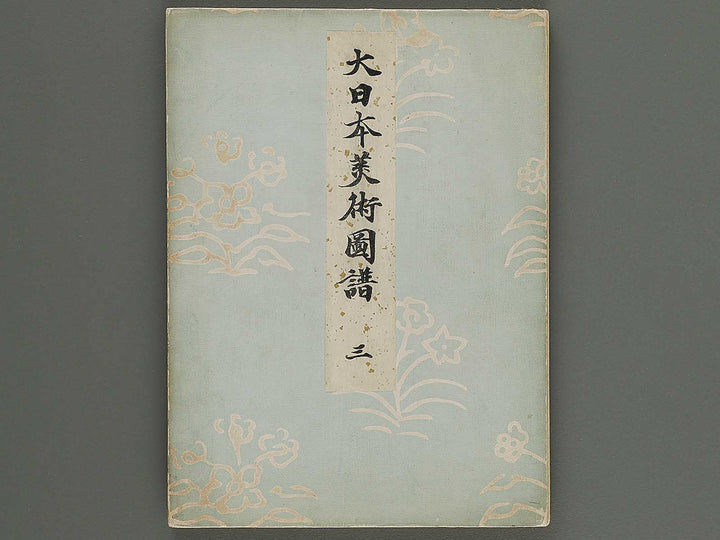 大日本美術圖譜 三